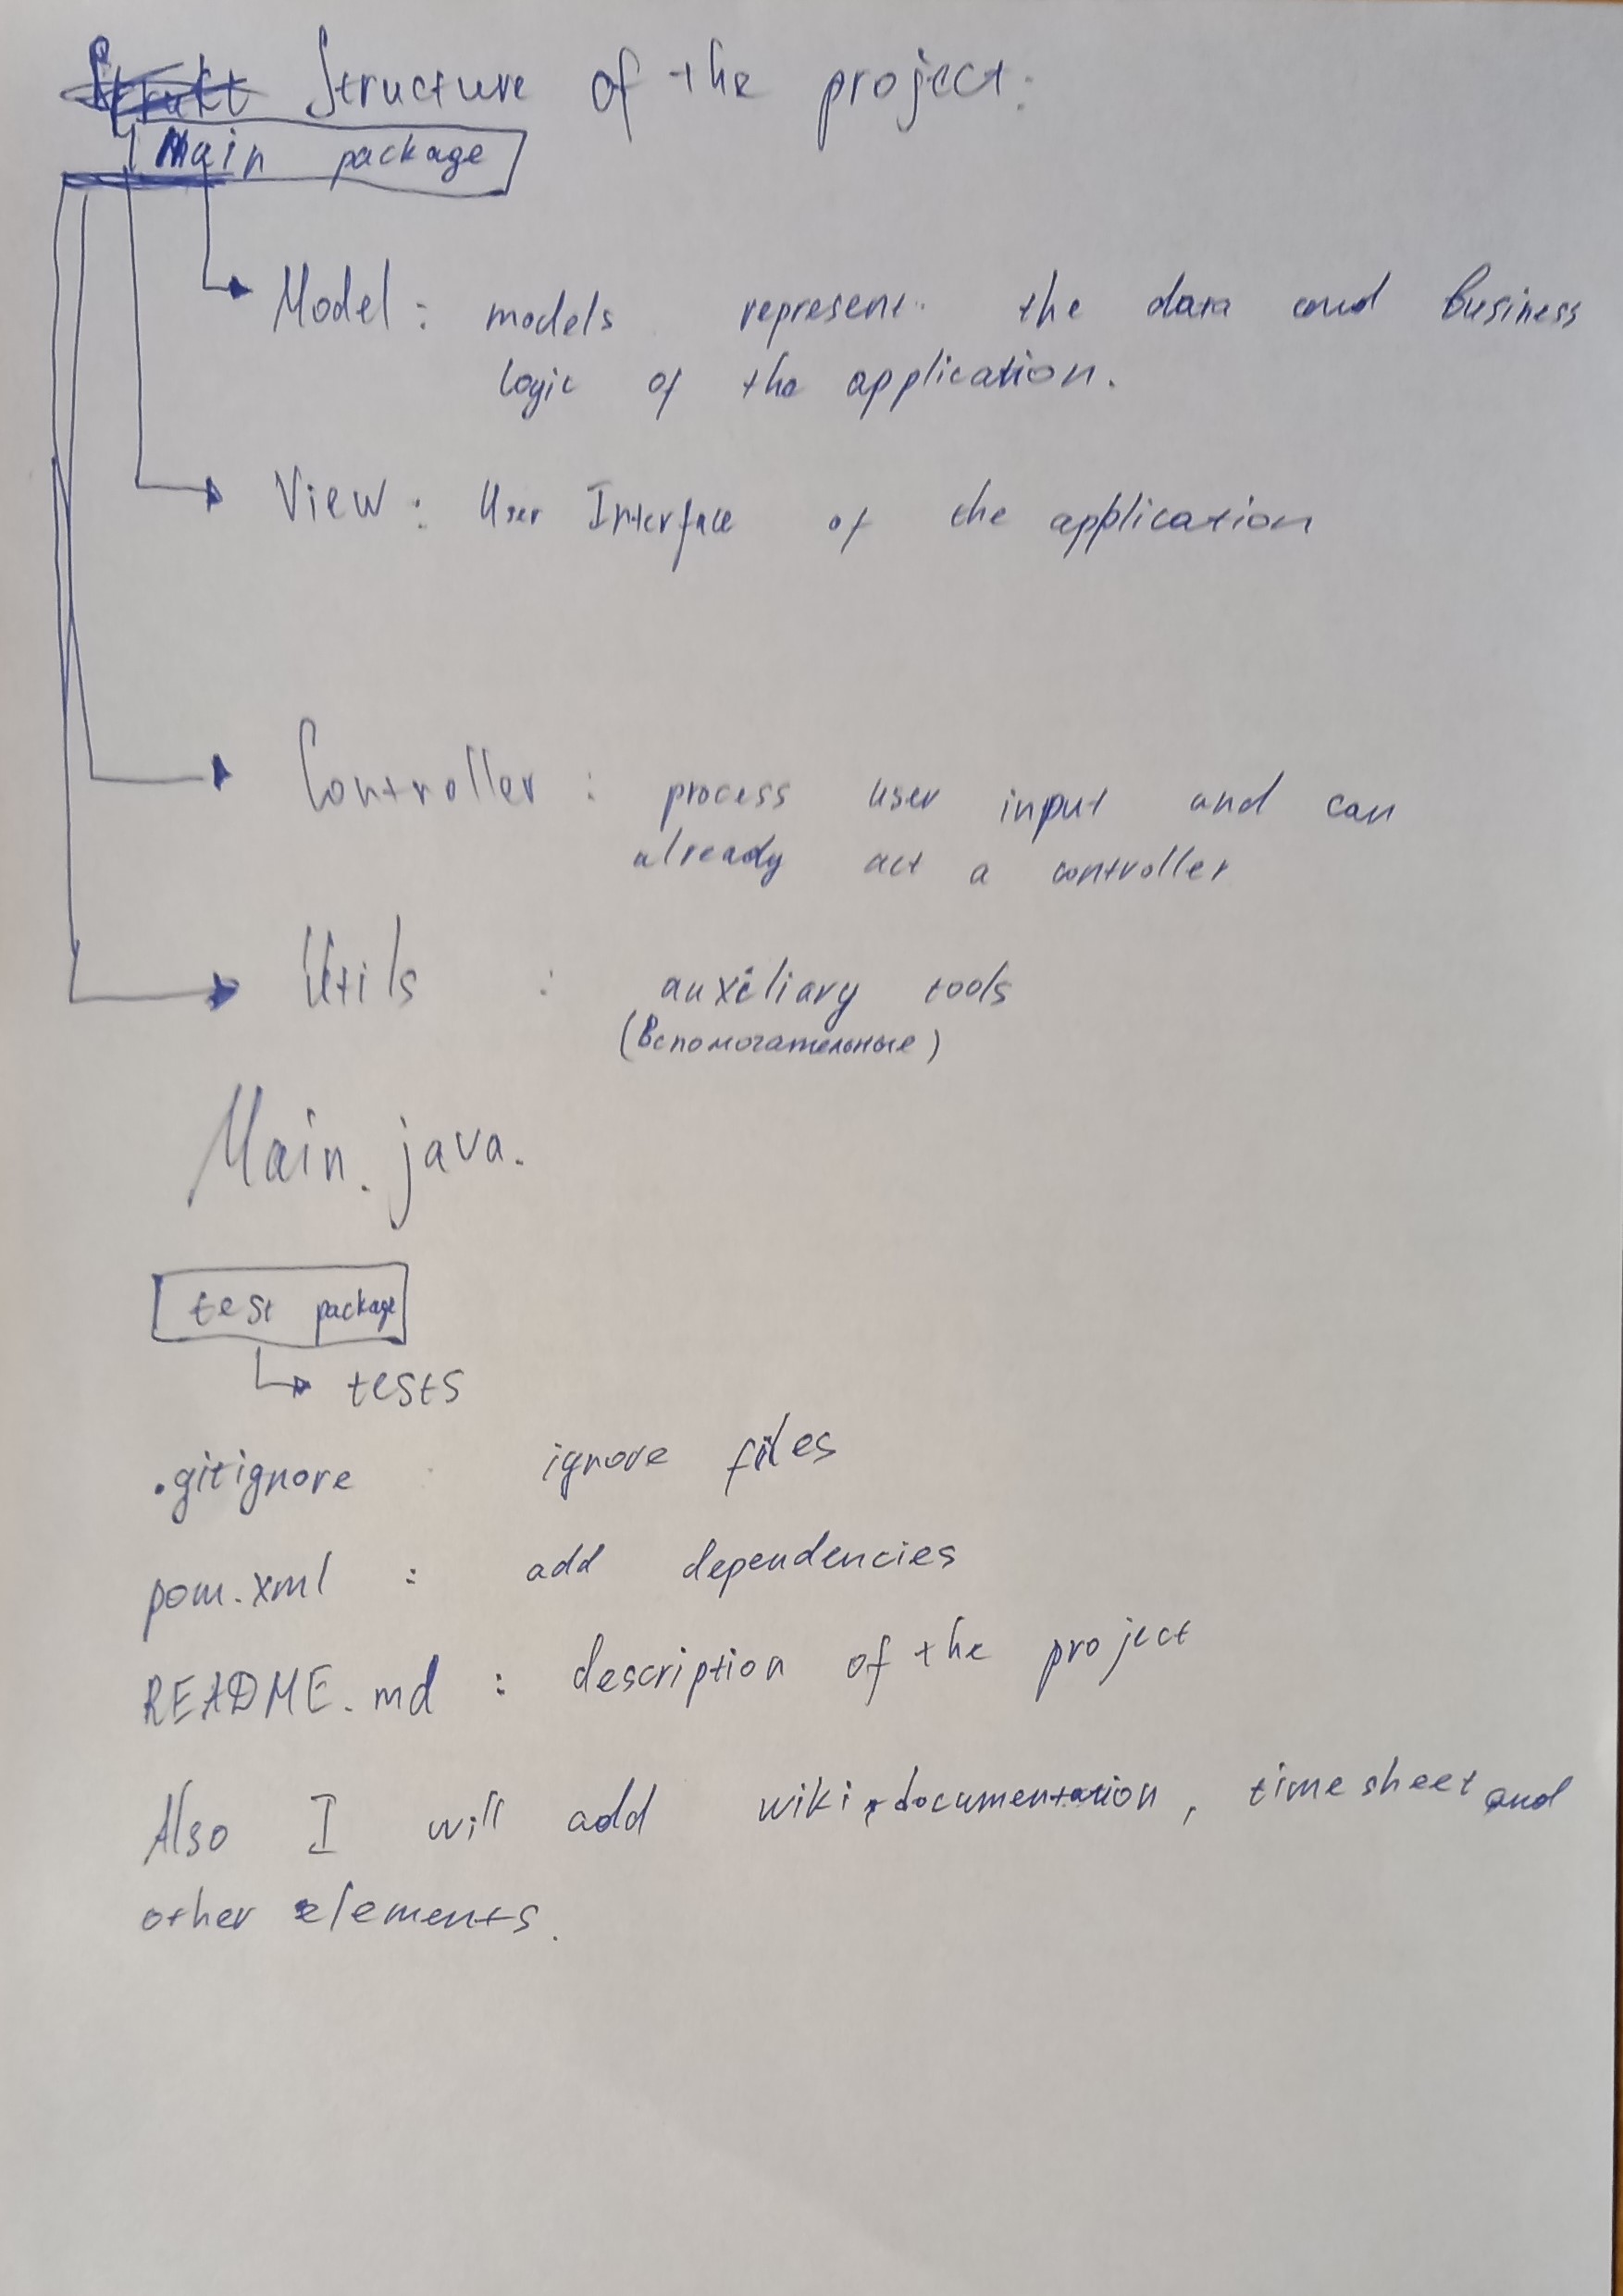 Strukt Structure of the project:
Main package
Model: models represent the data and business
logic of the application.
View: User Interface of the application
Controller: process user input and can
already act a controller
Utils : auxiliary tools
(Вспомогательные)
Main.java.
test package
tests
.gitignore : ignore files
pom.xml : add dependencies
README.md : description of the project
Also I will add wiki, documentation, timesheet and
other elements.